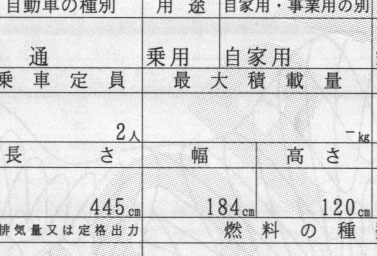 自動車の種別 用途 自家用・事業用の別
通 乗用 自家用
乗車定員 最大積載量
2人 -kg
長さ 幅 高さ
445cm 184cm 120cm
排気量又は定格出力 燃料の種